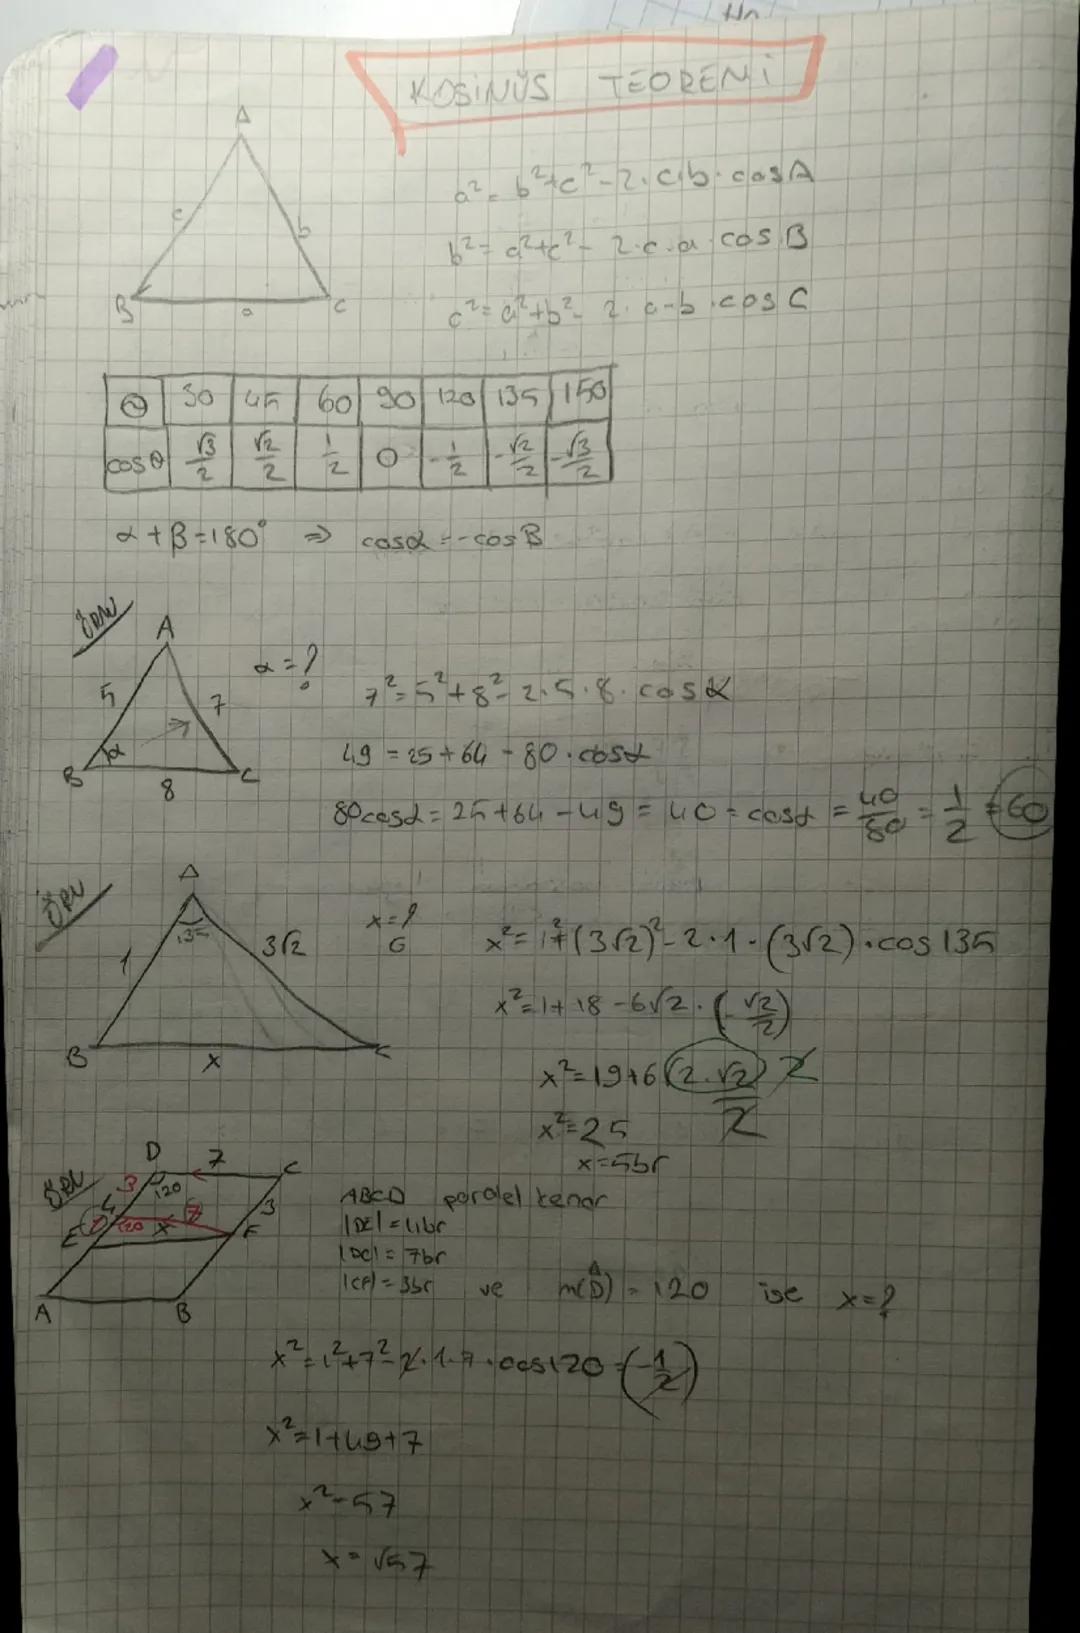 KOSİNÜS TEOREMİ
A
c
b
B
a
C
a² = b²+c²-2.c.b.cosA
b² = a²+c²- 2.c.a.cosB
c² = a²+b²- 2.a.b.cosC
θ 30 45 60 90 120 135 150
cosθ √3/2 √2/2 1/2 0 -1/2 -√2/2 -√3/2
α+β=180° ⇒ cosα=-cosB
ÖRN
A
5
7
α
B
8
C
α=?
7²=5²+8²-2.5.8.cosα
49=25+64-80.cosα
80cosα=25+64-49=40=cosα=40/80=1/2=60
ÖRN
A
135
1
3√2
B
x
C
x=?
x²=1²+(3√2)²-2.1.(3√2).cos135
x²=1+18-6√2.(-√2/2)
x²=19+6(2.√2)/2
x²=25
x=5br
ÖRN
D
7
C
3
120
4
3
7
E
1
120
x
F
A
B
ABCD paralel kenar
|DE|=4br
|DC|=7br
|CF|=3br ve m(D)=120 ise x=?
x²=1²+7²-2.1.7.cos120=(-1/2)
x²=1+49+7
x²=57
x=√57